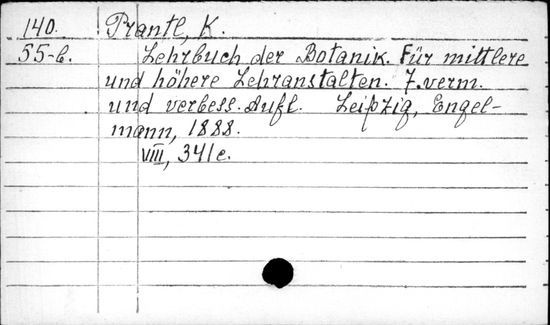 140. Prantl, K.
55-b. Lehrbuch der Botanik. Für mittlere
und höhere Lehranstalten. 7. verm.
und verbess. Aufl. Leipzig, Engel-
mann, 1888.
VIII, 341 e.